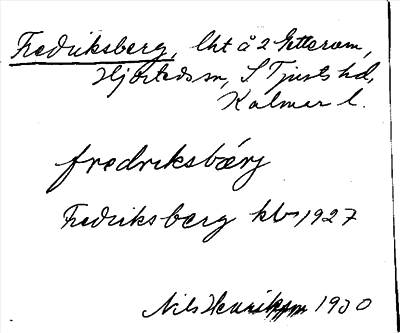 Fredriksberg, lht å 2 Getterum,
Hjorteds sn, S Tjusts hd,
Kalmar l.
fredriksbǽrj
Fredriksberg kb 1927
Nils Henriksson 1930